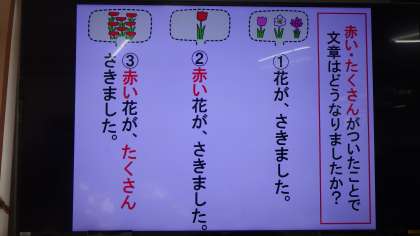 赤い・たくさんがついたことで
文章はどうなりましたか？
①花が、さきました。
②赤い花が、さきました。
③赤い花が、たくさん
さきました。